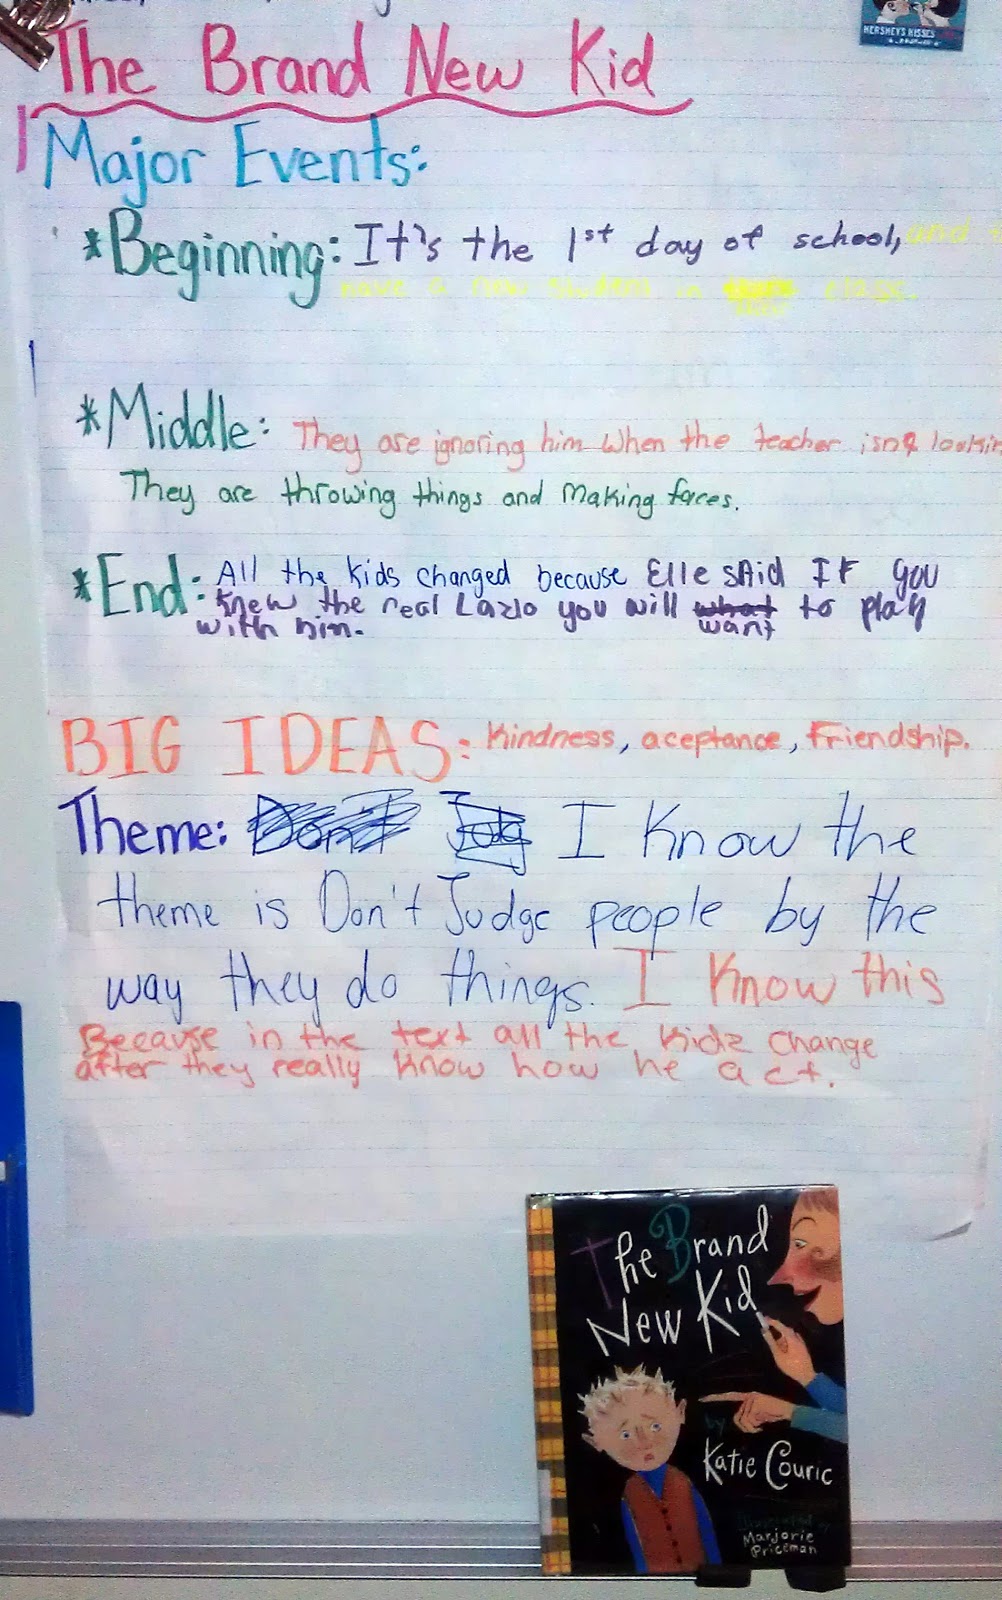 HERSHEY'S KISSES
The Brand New Kid
Major Events:
*Beginning: It's the 1st day of school, and
have a new student in class.
*Middle: They are ignoring him when the teacher isn't lookin
They are throwing things and making faces.
*End: All the kids changed because Elle said If you
knew the real Lazlo you will what to play
want
with him.
BIG IDEAS: Kindness, aceptance, Friendship.
Theme: Don't Judg I know the
theme is Don't Judge people by the
way they do things. I know this
Because in the text all the kidz change
after they really know how he act.
The Brand
New Kid
by
Katie Couric
Illustrated by
Marjorie
Priceman